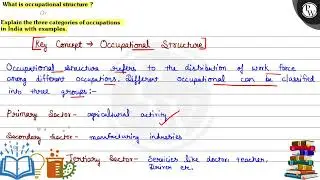 What is occupational structure ?
Or
Explain the three categories of occupations
in India with examples.
Key Concept → Occupational Structure
Occupational structure refers to the distribution of work force
among different occupations. Different occupational can be classified
into three groups:-
Primary Sector- agricultural activity
Secondary Sector- manufacturing industries
Tertiary Sector- Services like doctor, teacher,
Driver etc.